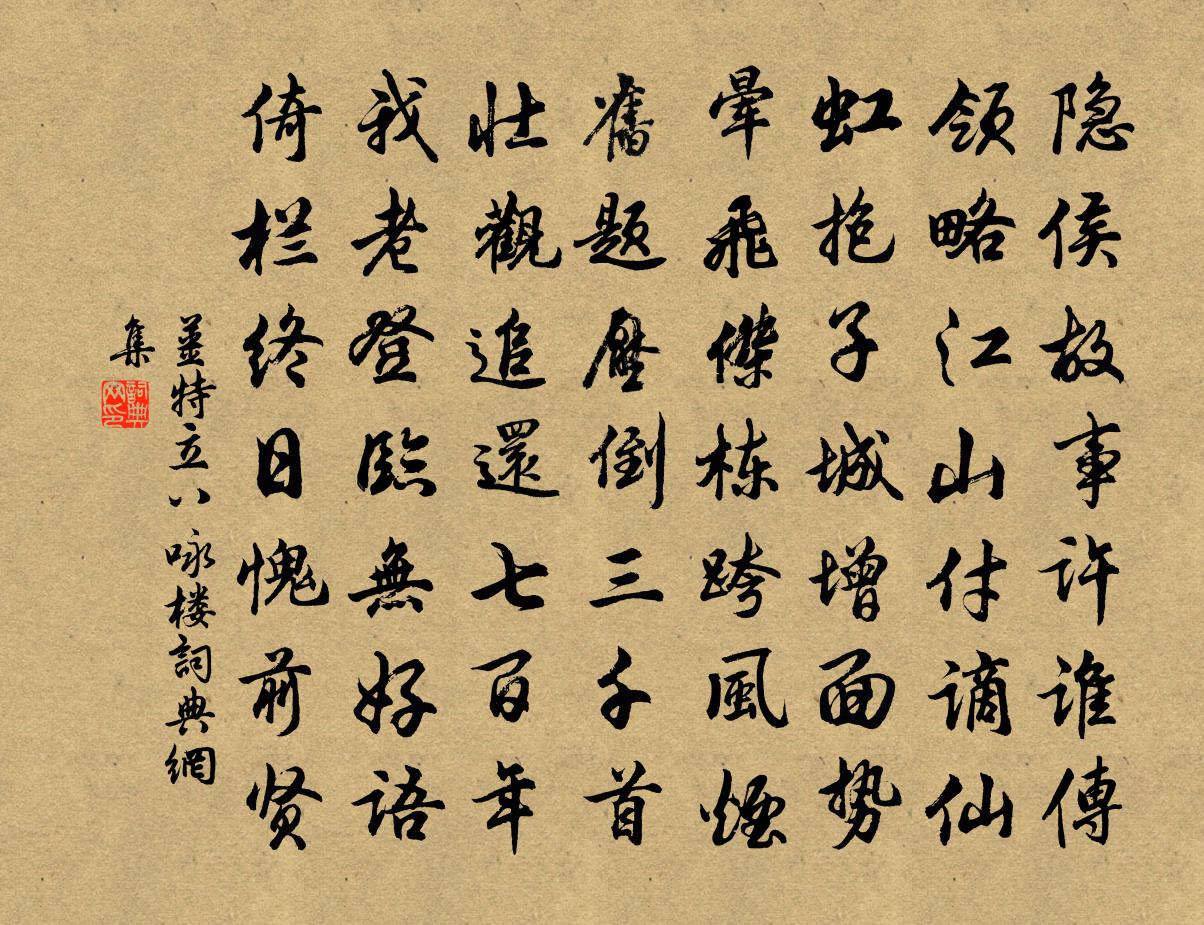 隐侯故事许谁傳
领略江山付谪仙
虹抱子城增面势
暈飛傑栋跨風煙
舊题壓倒三千首
壮觀追還七百年
我老登臨無好语
倚栏终日愧前贤
姜特立八咏楼詞典網
集
詞典网印